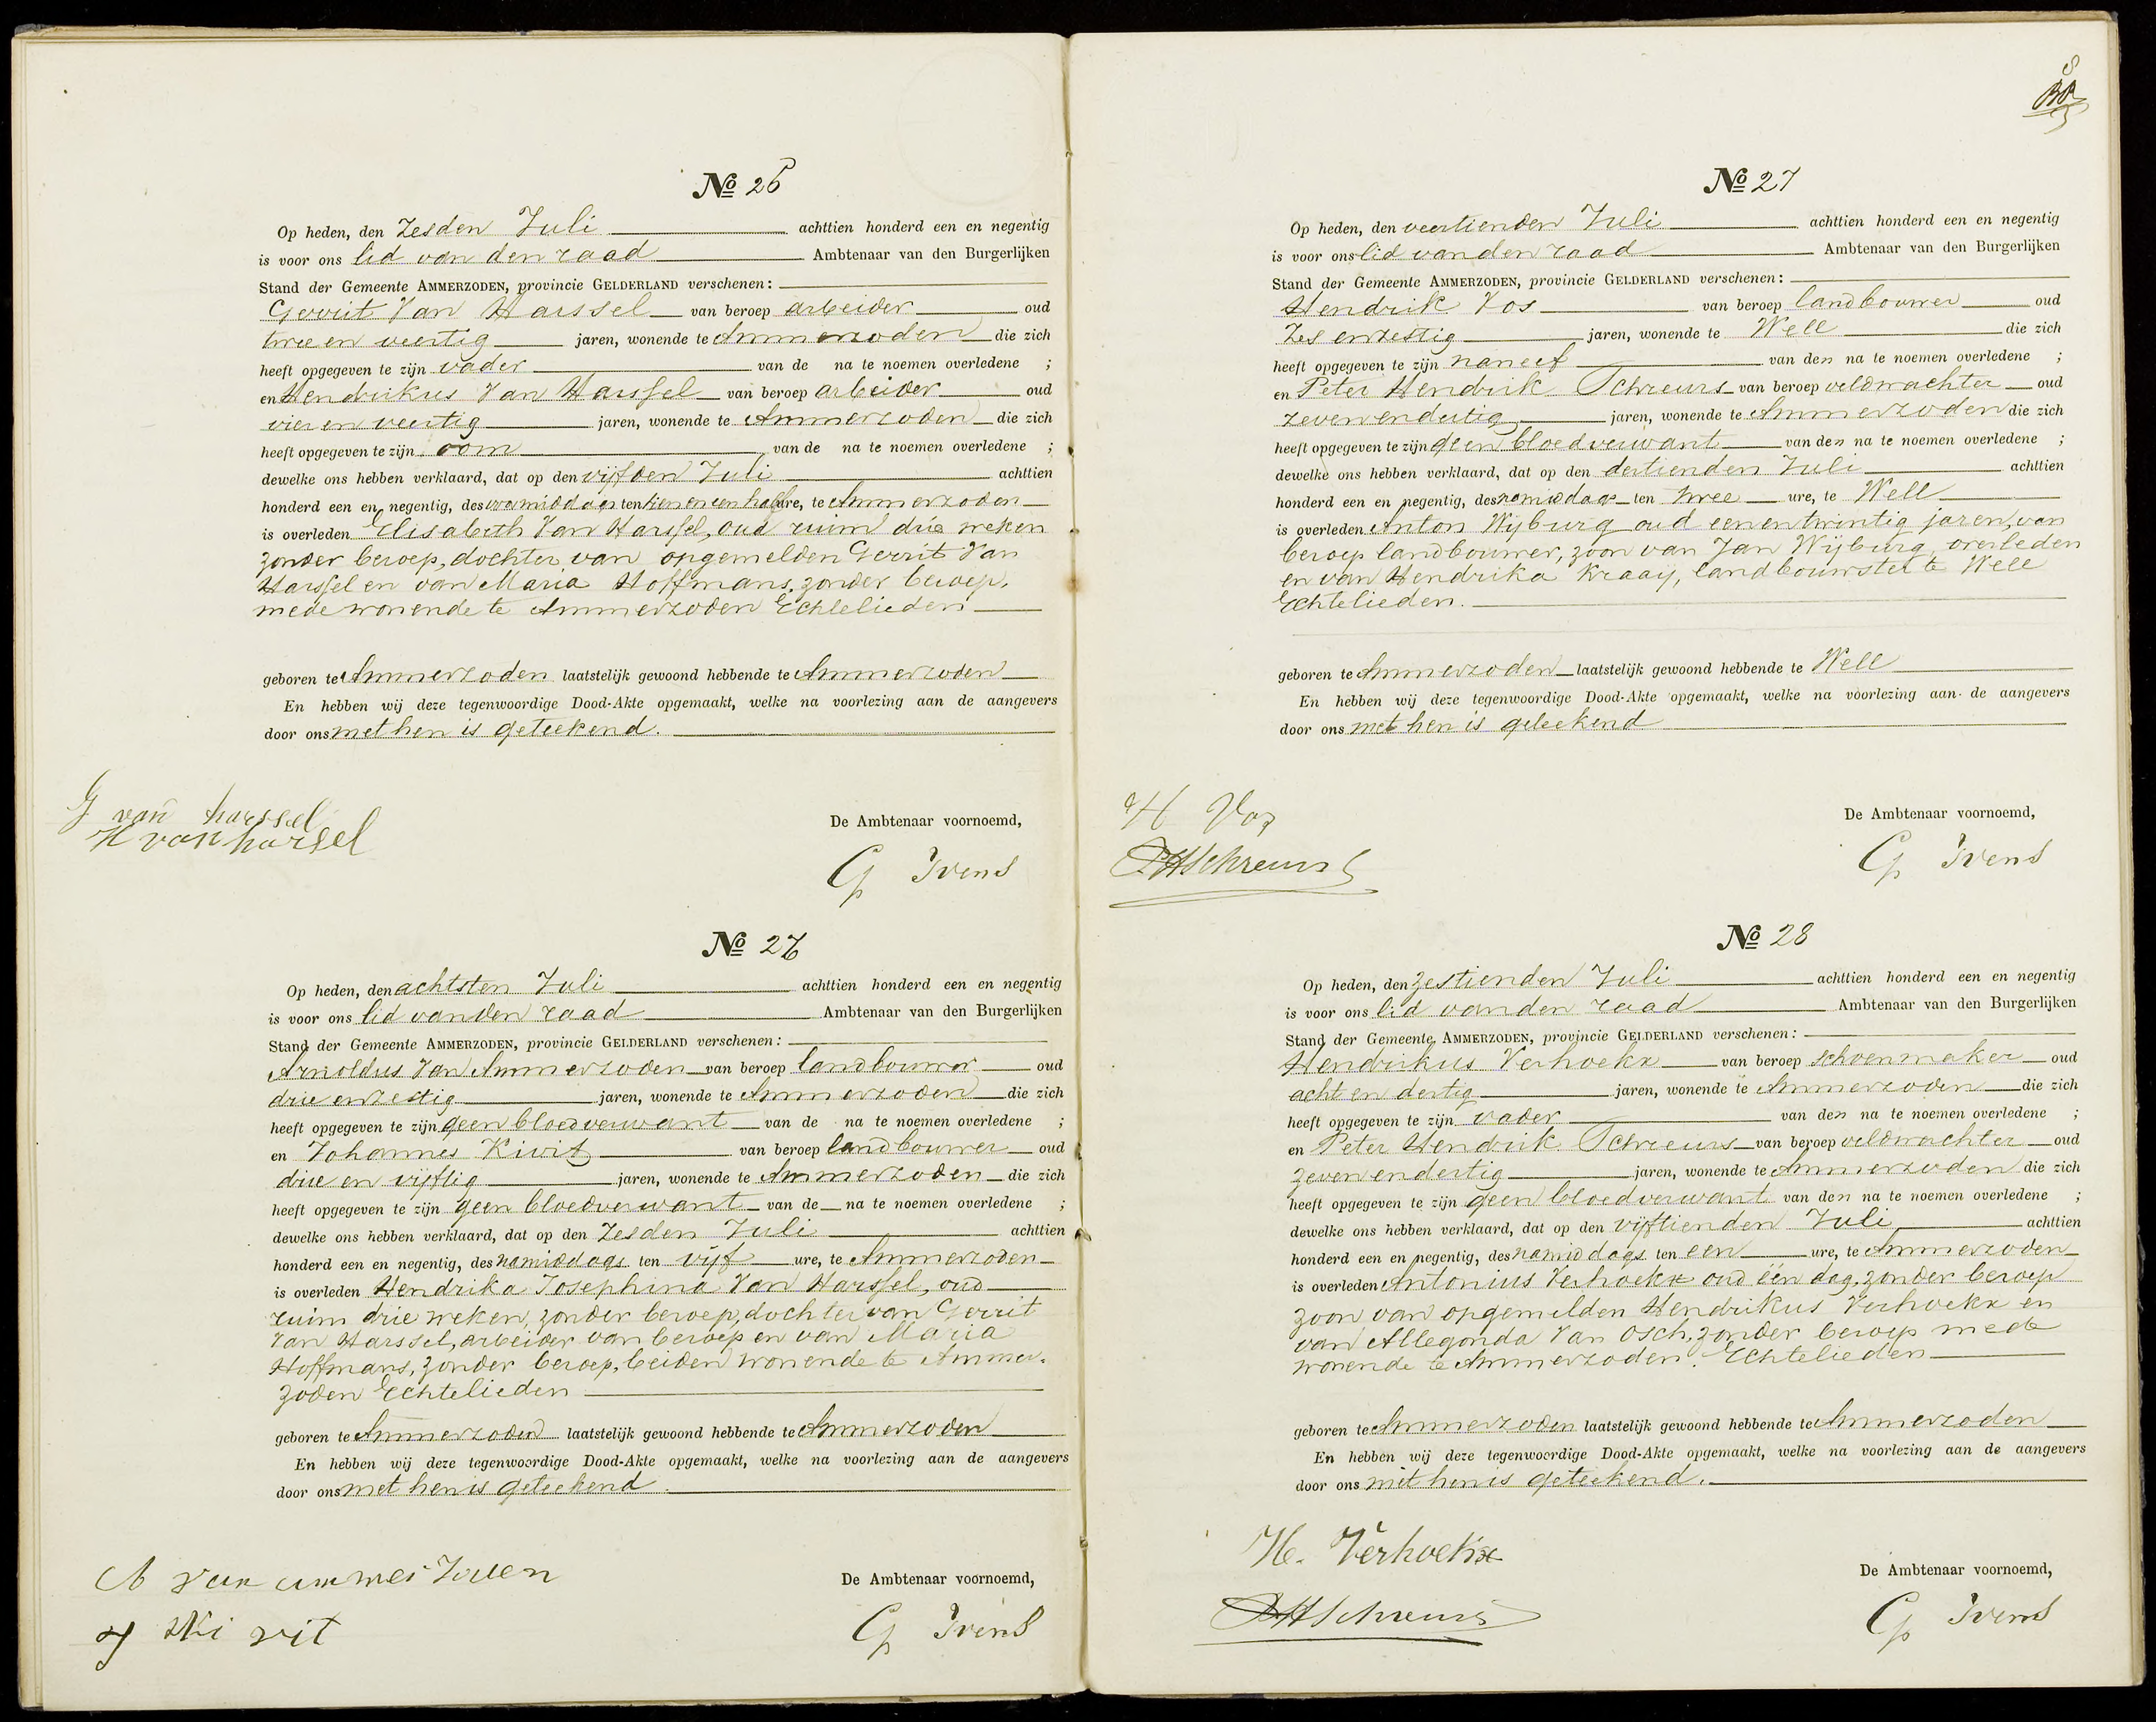 8
No 25
Op heden, den Zesden Juli achttien honderd een en negentig
is voor ons lid van den raad Ambtenaar van den Burgerlijken
Stand der Gemeente AMMERZODEN, provincie GELDERLAND verschenen:
Gerrit Van Harssel van beroep arbeider oud
twee en veertig jaren, wonende te Ammerzoden die zich
heeft opgegeven te zijn vader van de na te noemen overledene ;
en Hendrikus Van Harssel van beroep arbeider oud
vier en veertig jaren, wonende te Ammerzoden die zich
heeft opgegeven te zijn oom van de na te noemen overledene ;
dewelke ons hebben verklaard, dat op den vijfden Juli achttien
honderd een en negentig, des voormiddags ten tien en een half ure, te Ammerzoden
is overleden Elisabeth Van Harssel, oud ruim drie weken
zonder beroep, dochter van opgemelden Gerrit Van
Harssel en van Maria Hoffmans, zonder beroep,
mede wonende te Ammerzoden Echtelieden
geboren te Ammerzoden laatstelijk gewoond hebbende te Ammerzoden
En hebben wij deze tegenwoordige Dood-Akte opgemaakt, welke na voorlezing aan de aangevers
door ons met hen is geteekend.
G van harssel
H van harsel
De Ambtenaar voornoemd,
G Ivens
No 26
Op heden, den achtsten Juli achttien honderd een en negentig
is voor ons lid van den raad Ambtenaar van den Burgerlijken
Stand der Gemeente AMMERZODEN, provincie GELDERLAND verschenen:
Arnoldus Van Ammerzoden van beroep landbouwer oud
drie en zestig jaren, wonende te Ammerzoden die zich
heeft opgegeven te zijn geen bloedverwant van de na te noemen overledene ;
en Johannes Kivit van beroep landbouwer oud
drie en vijftig jaren, wonende te Ammerzoden die zich
heeft opgegeven te zijn geen bloedverwant van de na te noemen overledene ;
dewelke ons hebben verklaard, dat op den Zesden Juli achttien
honderd een en negentig, des namiddags ten vijf ure, te Ammerzoden
is overleden Hendrika Josephina Van Harssel, oud
ruim drie weken, zonder beroep, dochter van Gerrit
Van Harssel, arbeider van beroep en van Maria
Hoffmans, zonder beroep, beiden wonende te Ammer-
zoden Echtelieden
geboren te Ammerzoden laatstelijk gewoond hebbende te Ammerzoden
En hebben wij deze tegenwoordige Dood-Akte opgemaakt, welke na voorlezing aan de aangevers
door ons met hen is geteekend.
A van ammerzoden
J Kivit
De Ambtenaar voornoemd,
G Ivens
No 27
Op heden, den veertienden Juli achttien honderd een en negentig
is voor ons lid van den raad Ambtenaar van den Burgerlijken
Stand der Gemeente AMMERZODEN, provincie GELDERLAND verschenen:
Hendrik Vos van beroep landbouwer oud
Zes en zestig jaren, wonende te Well die zich
heeft opgegeven te zijn naneef van den na te noemen overledene ;
en Peter Hendrik Schreurs van beroep veldwachter oud
zeven en dertig jaren, wonende te Ammerzoden die zich
heeft opgegeven te zijn geen bloedverwant van den na te noemen overledene ;
dewelke ons hebben verklaard, dat op den dertienden Juli achttien
honderd een en negentig, des namiddags ten twee ure, te Well
is overleden Anton Wijburg oud een en twintig jaren, van
beroep landbouwer, zoon van Jan Wijburg, overleden
en van Hendrika Kraaij, landbouwster te Well
Echtelieden.
geboren te Ammerzoden laatstelijk gewoond hebbende te Well
En hebben wij deze tegenwoordige Dood-Akte opgemaakt, welke na voorlezing aan de aangevers
door ons met hen is geteekend
H Vos
PHSchreurs
De Ambtenaar voornoemd,
G Ivens
No 28
Op heden, den zestienden Juli achttien honderd een en negentig
is voor ons lid van den raad Ambtenaar van den Burgerlijken
Stand der Gemeente AMMERZODEN, provincie GELDERLAND verschenen:
Hendrikus Verhoekx van beroep schoenmaker oud
acht en dertig jaren, wonende te Ammerzoden die zich
heeft opgegeven te zijn vader van den na te noemen overledene ;
en Peter Hendrik Schreurs van beroep veldwachter oud
zeven en dertig jaren, wonende te Ammerzoden die zich
heeft opgegeven te zijn geen bloedverwant van den na te noemen overledene ;
dewelke ons hebben verklaard, dat op den vijftienden Juli achttien
honderd een en negentig, des namiddags ten een ure, te Ammerzoden
is overleden Antonius Verhoekx oud één dag, zonder beroep
zoon van opgemelden Hendrikus Verhoekx en
van Allegonda Van Osch, zonder beroep mede
wonende te Ammerzoden. Echtelieden
geboren te Ammerzoden laatstelijk gewoond hebbende te Ammerzoden
En hebben wij deze tegenwoordige Dood-Akte opgemaakt, welke na voorlezing aan de aangevers
door ons met hen is geteekend.
H. Verhoekx
PHSchreurs
De Ambtenaar voornoemd,
G Ivens